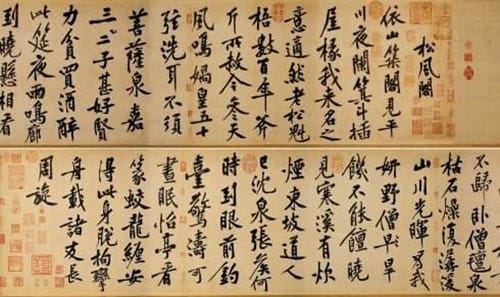 松風閣
依山築閣見平
川夜闌箕斗插
屋椽我來名之
意適然老松魁
梧數百年斧
斤所赦今參天
風鳴媧皇五十
弦洗耳不須
菩薩泉嘉
三二子甚好賢
力貧買酒醉
此筵夜雨鳴廊
到曉懸相看
不歸臥僧氈泉
枯石燥復潺湲
山川光暉為我
妍野僧旱
饑不能饘曉
見寒溪有炊
煙東坡道人
已沈泉張侯何
時到眼前釣
臺驚濤可
晝眠怡亭看
篆蛟龍纏安
得此身脫拘攣
舟載諸友長
周旋